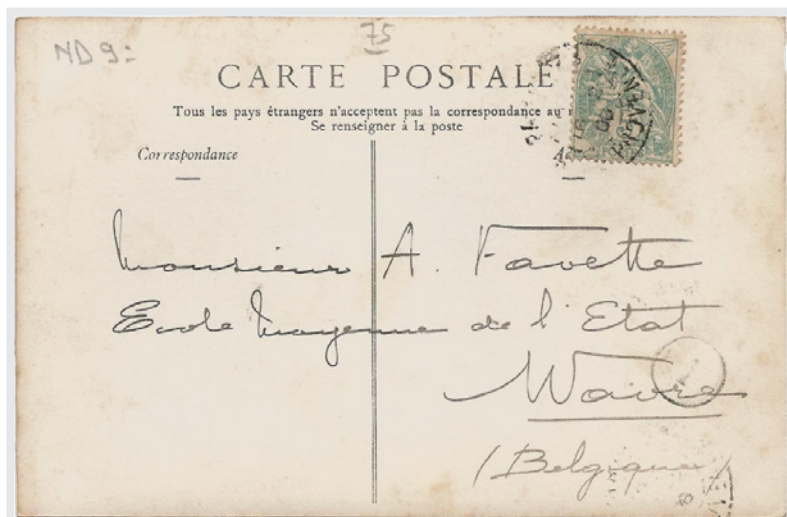 75
ND 9:
CARTE POSTALE
Tous les pays étrangers n'acceptent pas la correspondance au
Se renseigner à la poste
Correspondance
Monsieur A. Favette
Ecole Moyenne de l'Etat
Wavre
(Belgique)